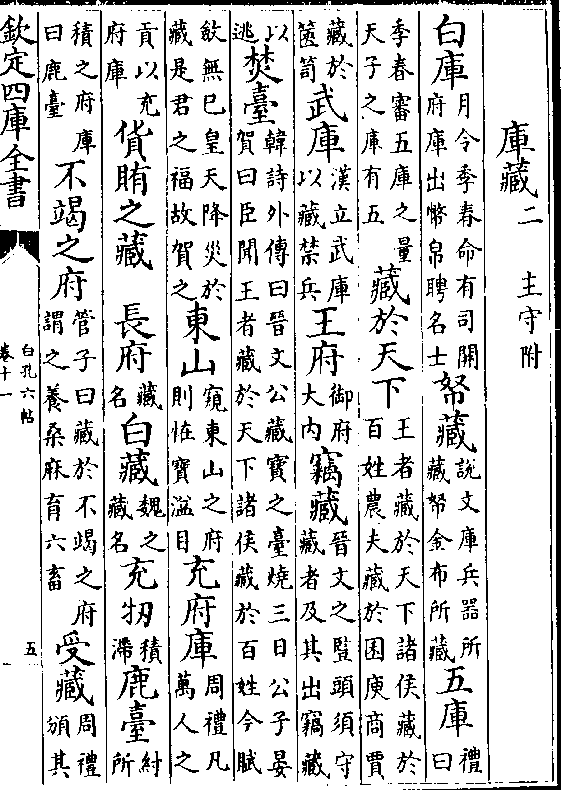 庫藏二　主守附
白庫月令季春命有司開府庫出幣帛聘名士帑藏說文庫兵器所藏帑金布所藏五庫禮曰
季春審五庫之量天子之庫有五藏於天下王者藏於天下諸侯藏於百姓農夫藏於囷庾商賈
藏於篋笥武庫漢立武庫以藏禁兵王府御府大内竊藏晉文之豎頭須守藏者及其出竊藏
以逃焚臺韓詩外傳曰晉文公藏寶之臺燒三日公子晏賀曰臣聞王者藏於天下諸侯藏於百姓今賦
斂無已皇天降災於藏是君之福故賀之東山窺東山之府則恠寶溢目充府庫周禮凡萬人之
貢以充府庫貨賄之藏　長府藏名白藏魏之藏名充牣積滯鹿臺紂所
積之府庫曰鹿臺不竭之府管子曰藏於不竭之府謂之養桑麻育六畜受藏周禮頒其
欽定四庫全書
白孔六帖
卷十一
五